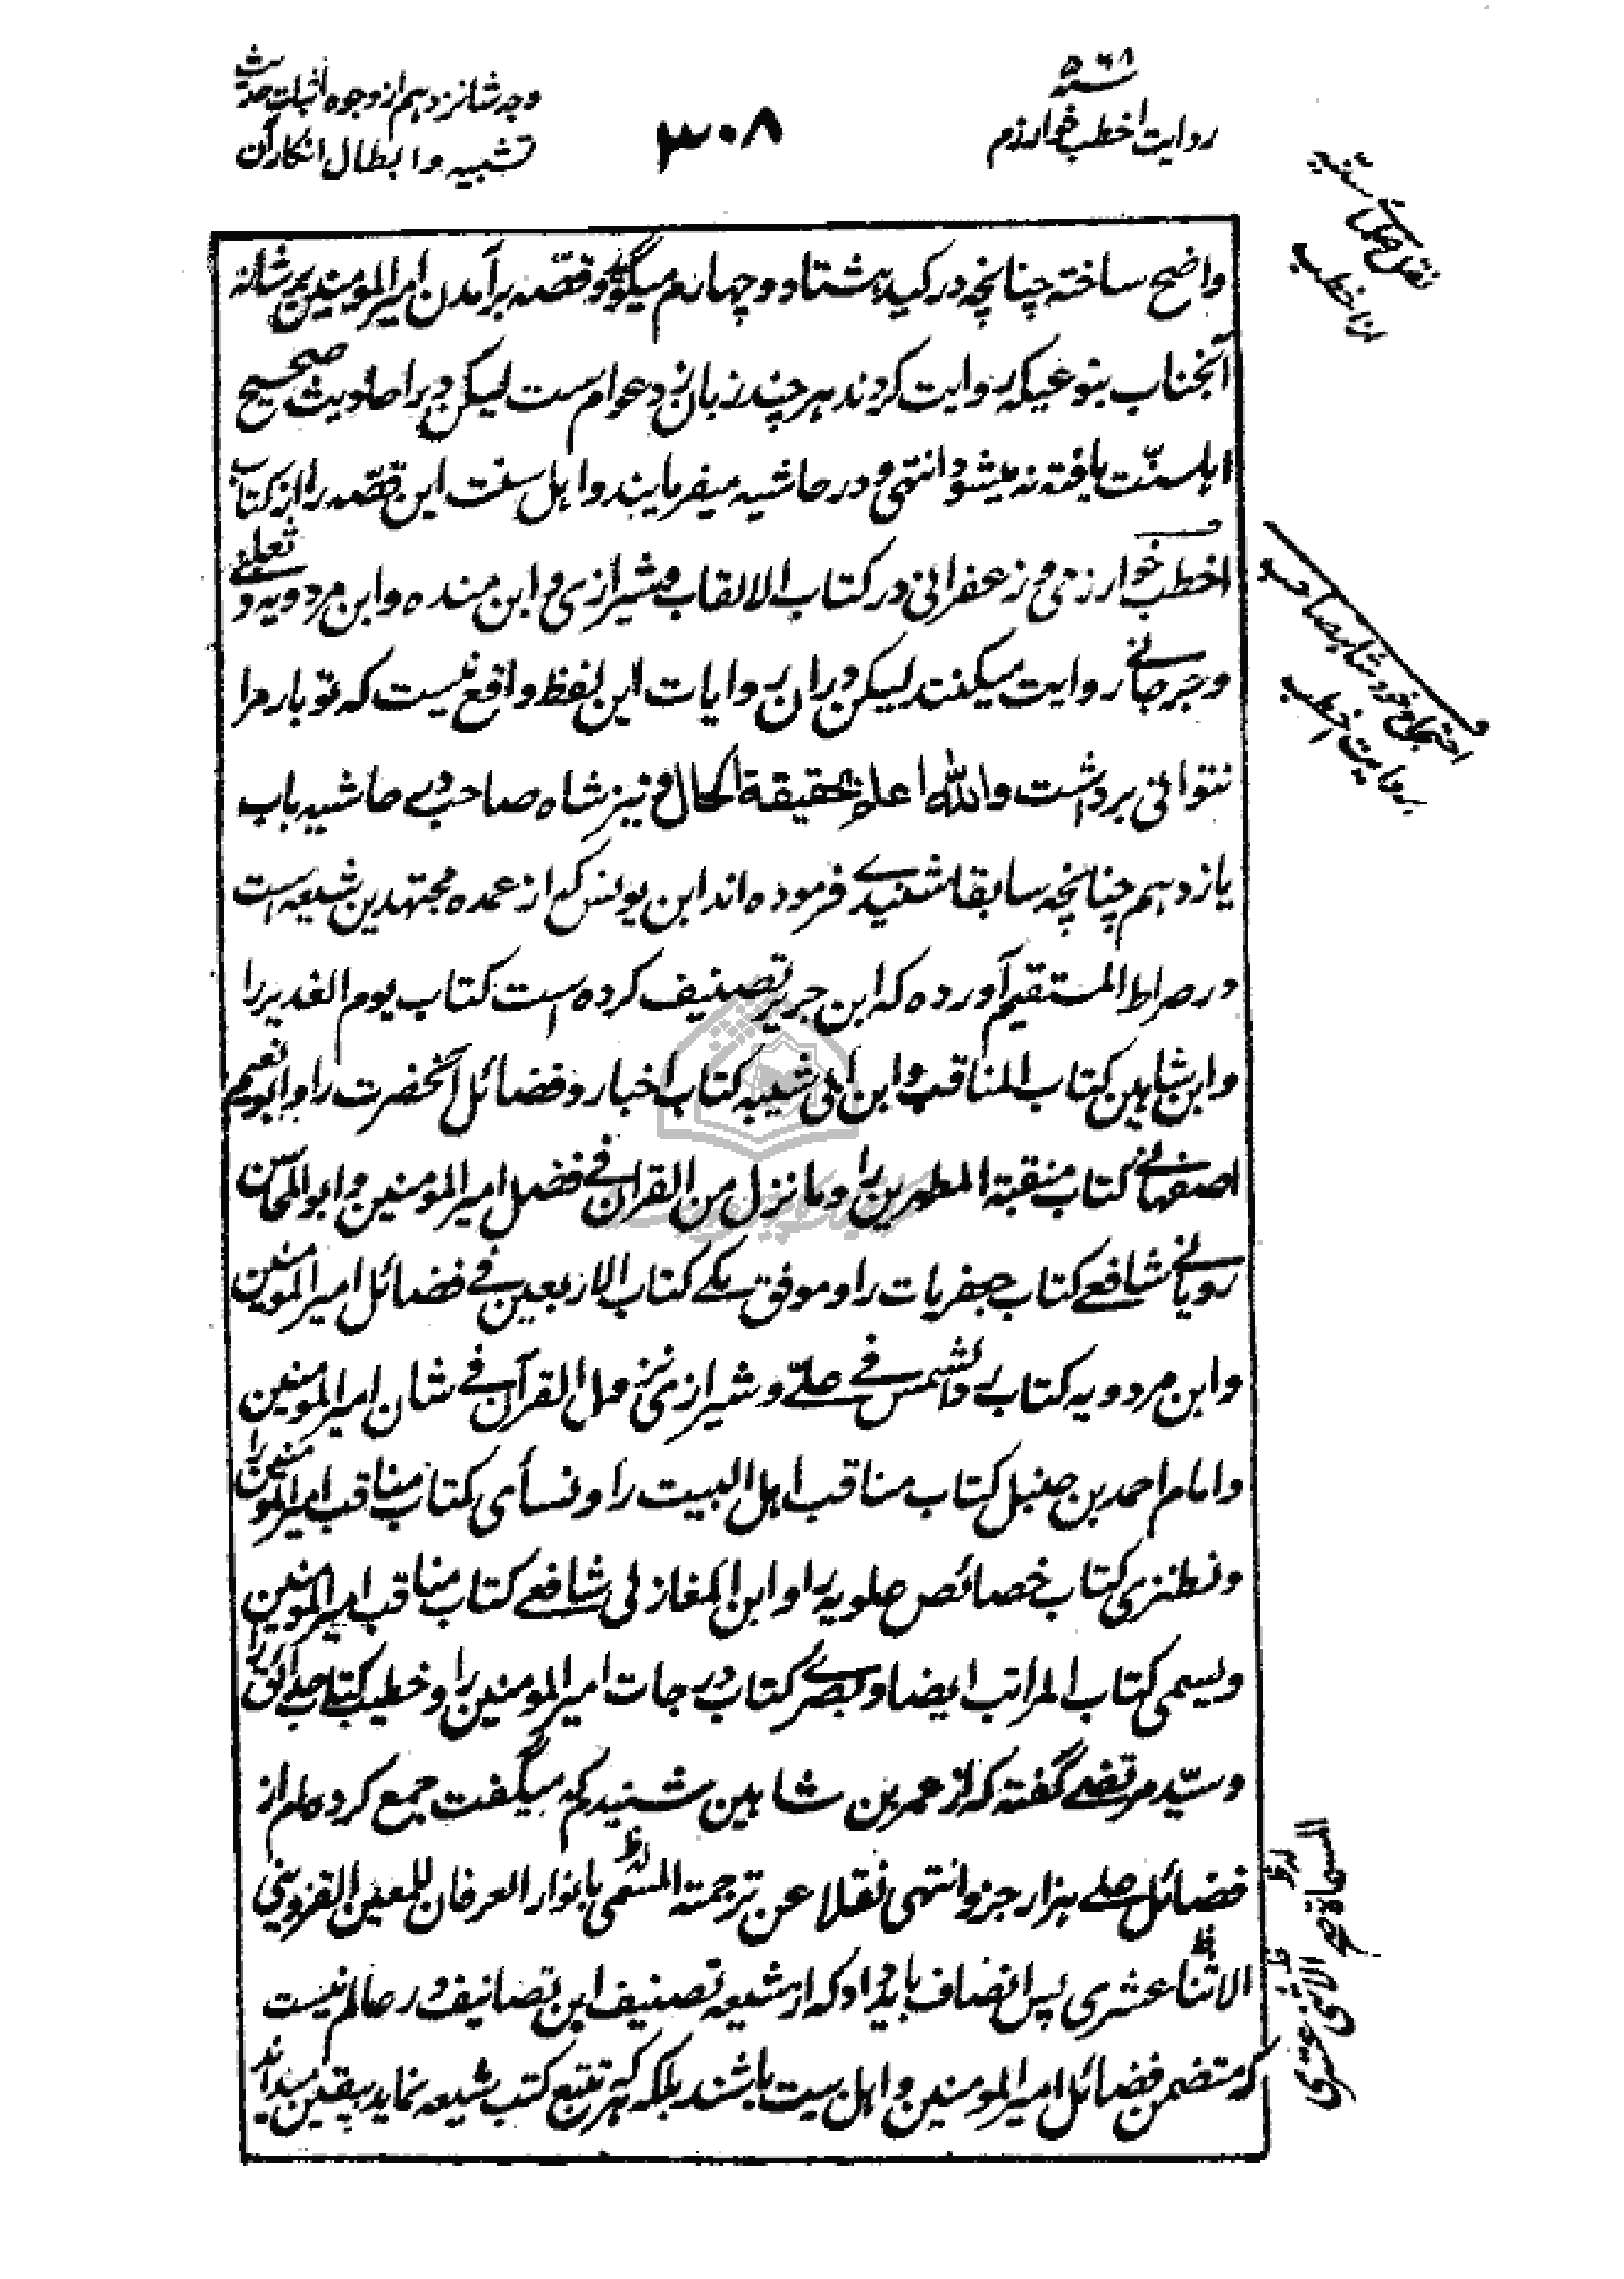 ۵۶۸
روایت اخطب خوارزم
۳۰۸
وجه شانزدهم از وجوه اثبات حدیث
تشبیه و ابطال انکار آن
نقل علما سنیه
از اخطب
واضح ساخته چنانچه در کید هشتاد و چهارم میگوید و قصه برآمدن امیر المومنین بر شانه
آنجناب بنوعیکه روایت کردند هر چند زبان زد عوام ست لیکن در احادیث صحیح
اهلسنّت یافته نمیشود انتهی و در حاشیه میفرمایند و اهل سنت این قصّه را از کتاب
اخطب خوارزمی و زعفرانی در کتاب الالقاب و شیرازی و ابن منده و ابن مردویه و ثعلبی
و جرجانی روایت میکنند لیکن در ان روایات این لفظ واقع نیست که تو بار مرا
نتوانی برداشت والله اعلم بحقیقة الحال و نیز شاه صاحب در حاشیه باب
احتجاج خود شاهصاحب
بروایت اخطب
یازدهم چنانچه سابقا شنیدی فرموده اند ابن یونس که از عمده مجتهدین شیعه است
در صراط المستقیم آورده که ابن جریر تصنیف کرده است کتاب یوم الغدیر را
و ابن شاهین کتاب المناقب و ابن ابی شیبه کتاب اخبار و فضائل آنحضرت را و ابو نعیم
اصفهانی کتاب منقبة المطهرین را و ما نزل من القران فی فضل امیر المومنین و ابو المحاسن
رویانی شافعی کتاب جعفریات را و موفق مکی کتاب الاربعین فی فضائل امیر المومنین
و ابن مردویه کتاب رد الشمس فی علی و شیرازی نزول القرآن فی شان امیر المومنین
و امام احمد بن حنبل کتاب مناقب اهل البیت را و نسأی کتاب مناقب امیر المومنین را
و نطنزی کتاب خصائص علویه را و ابن المغازلی شافعی کتاب مناقب امیر المومنین را
و یسمی کتاب المراتب ایضا و بصری کتاب درجات امیر المومنین را و خطیب کتاب حدائق را
و سیّد مرتضی گفته که از عمر بن شاهین شنیدم که میگفت جمع کرده ام از
فضائل علی هزار جزو انتهی نقلا عن ترجمته المسمی بانوار العرفان للمعین القزوینی
الاثنا عشری پس انصاف باید داد که از شیعه تصنیف این تصانیف در عالم نیست
که متضمن فضائل امیر المومنین و اهل بیت باشند بلکه هر که تتبع کتب شیعه نماید بیقین میداند
المسماة صح
الاثنی عشری